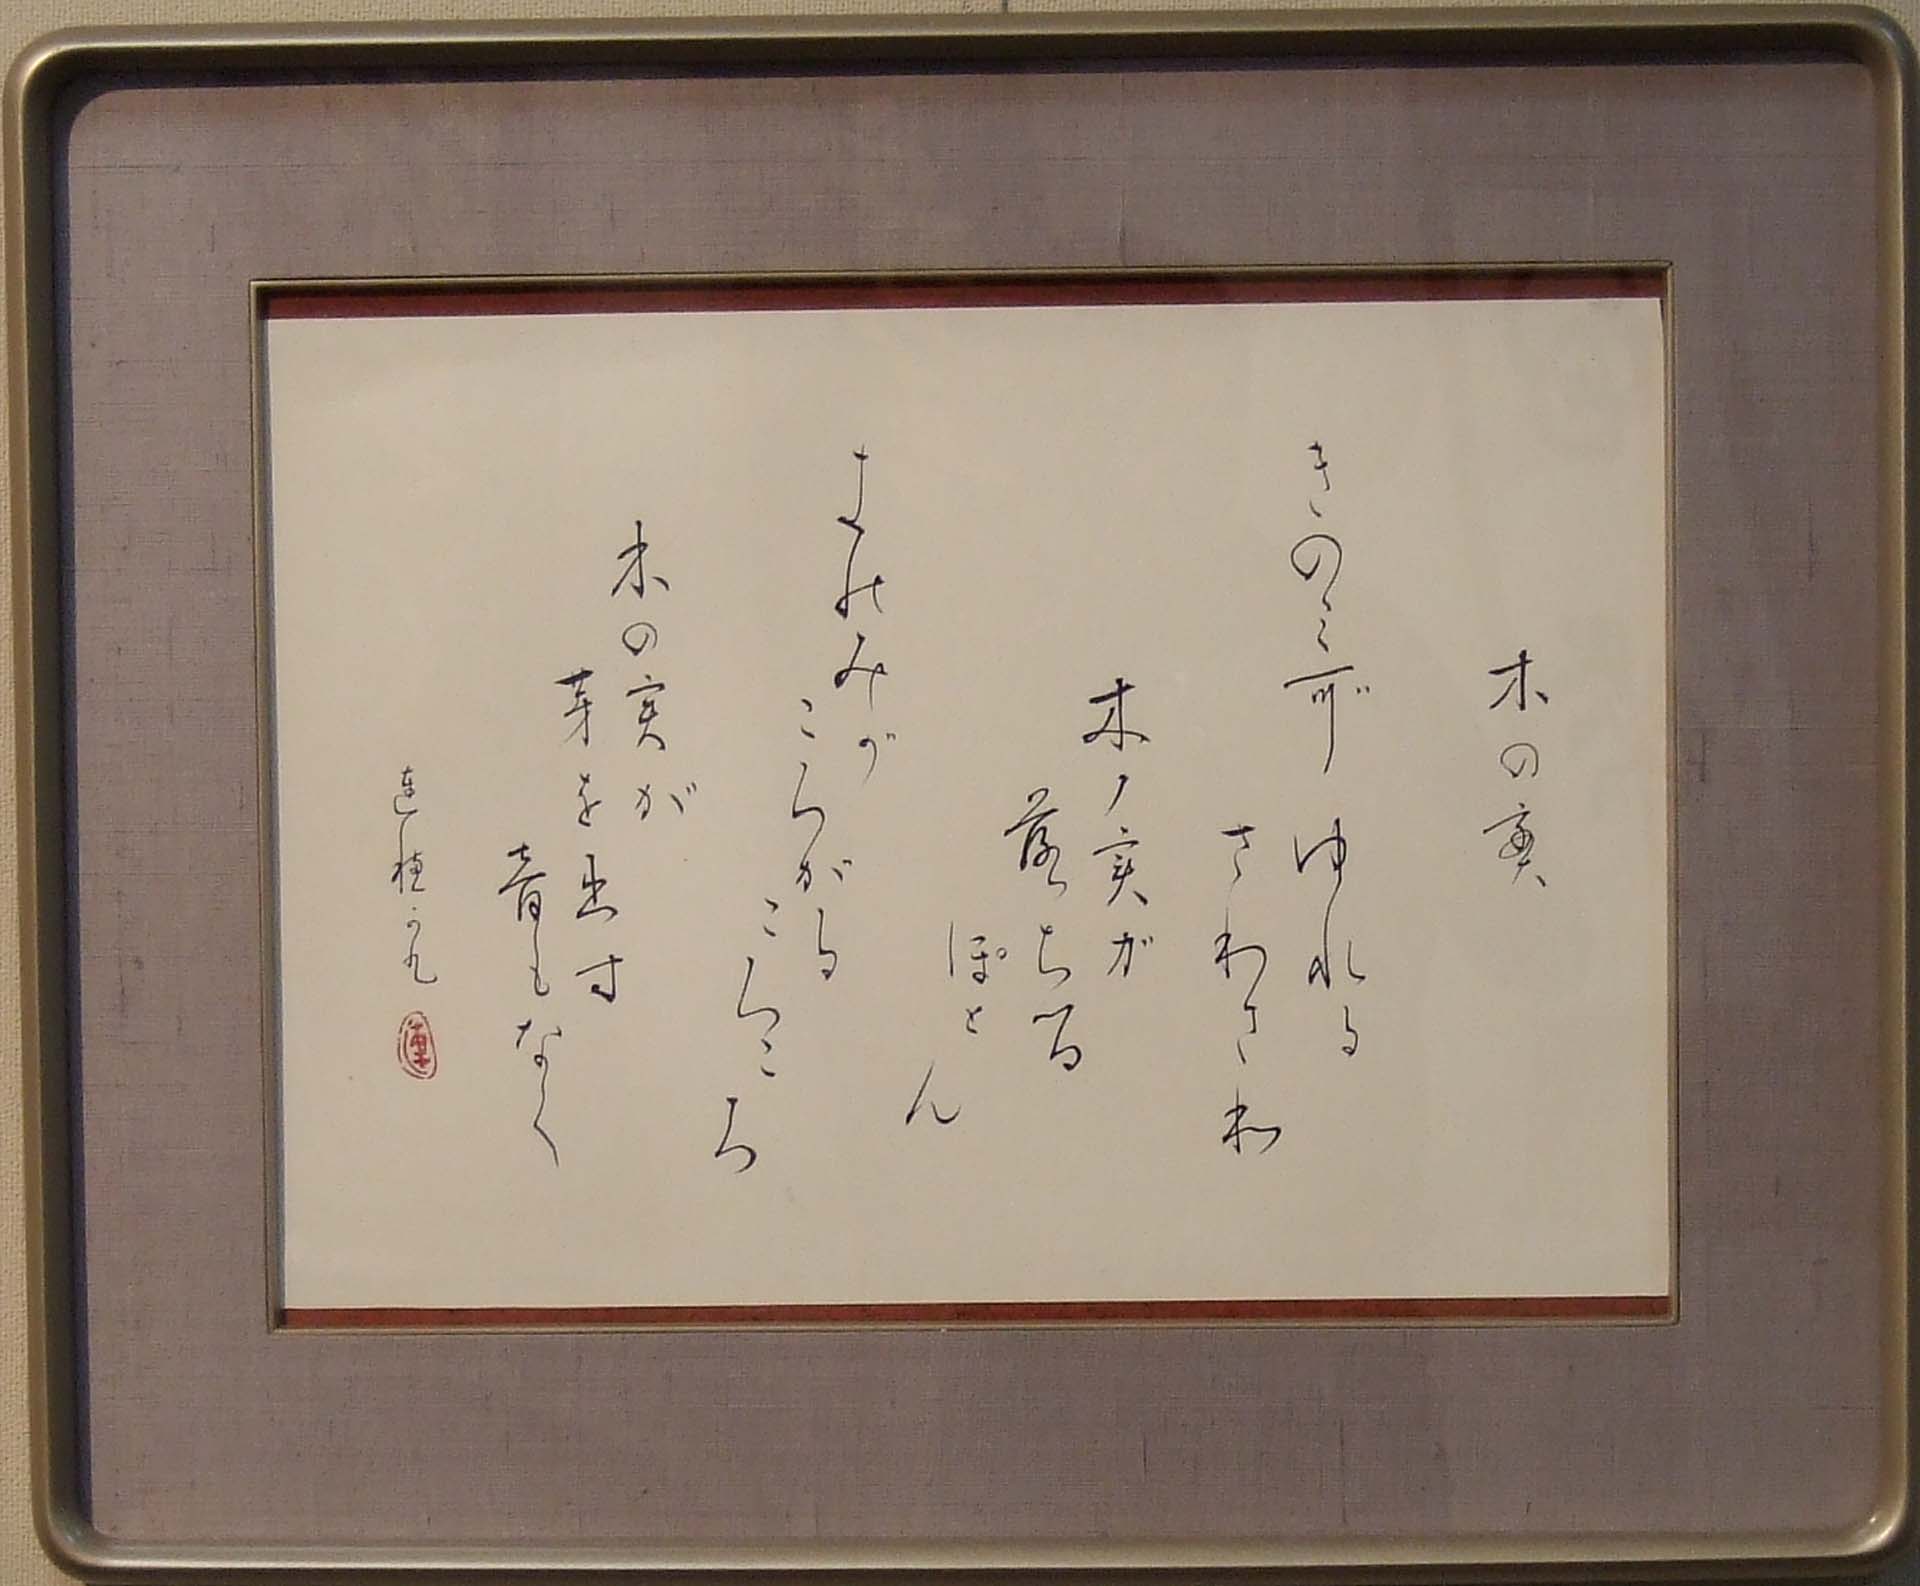 木の実
きのミが ゆれる
さわさわ
木ノ実が
落ちる
ぽとん
きのみが
ころがる
ころころ
木の実が
芽を出す
音もなく